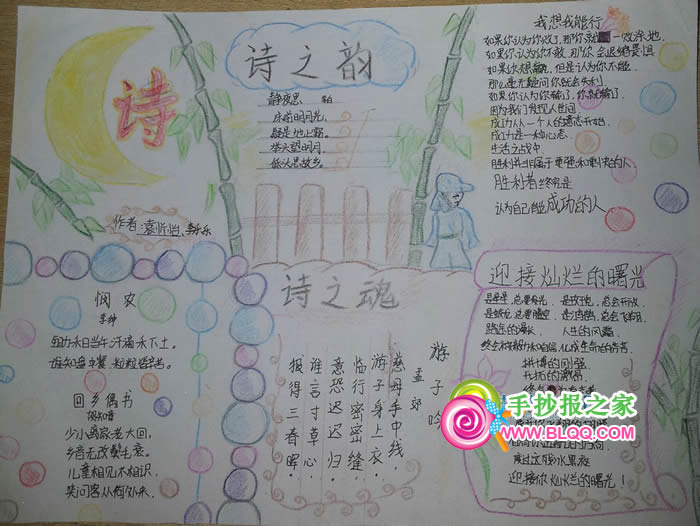 诗
诗之韵
静夜思
床前明月光,
疑是地上霜。
举头望明月,
低头思故乡。
作者:袁忻怡、李乐
我想我能行
如果你认为你败了,那你就一败涂地.
如果你想赢,但是认为你不能.
那么毫无疑问你就会失利
如果你认为你输了,你就输了.
因为我们发现人世间
成功从一个人的意志开始.
成功是一种心态.
生活之战中.
胜利者终究是
认为自己能成功的人
悯农
李绅
锄禾日当午,汗滴禾下土。
谁知盘中餐,粒粒皆辛苦。
回乡偶书
贺知章
少小离家老大回,
乡音无改鬓毛衰。
儿童相见不相识,
笑问客从何处来。
诗之魂
游子吟
孟郊
慈母手中线
游子身上衣
临行密密缝
意恐迟迟归
谁言寸草心
报得三春晖
迎接灿烂的曙光
拼搏的刚强
开拓的激昂
度过这段水黑夜
迎接你灿烂的曙光!
手抄报之家
WWW.BLQQ.COM